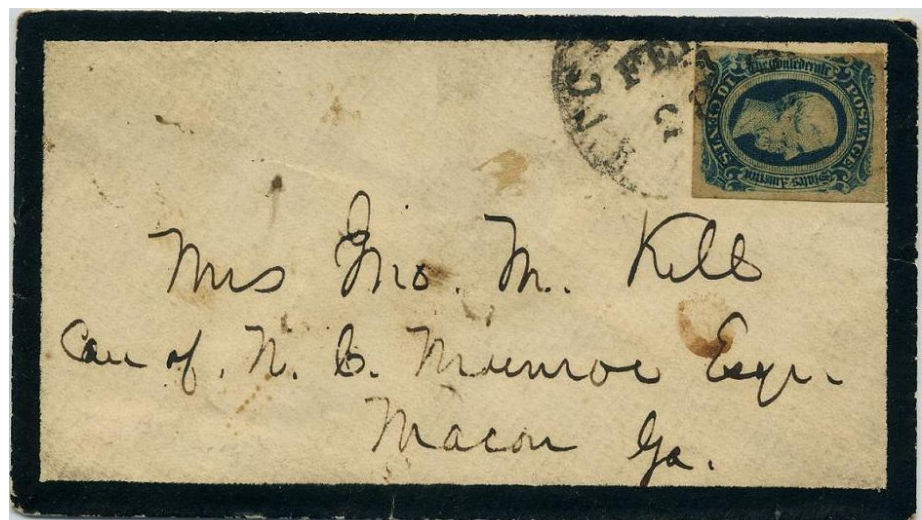 FEB
The Confederate
States America
POSTAGE
10 CENTS
Mrs Jno. M. Kell
Care of. N. C. Munroe Esqr.
Macon Ga.